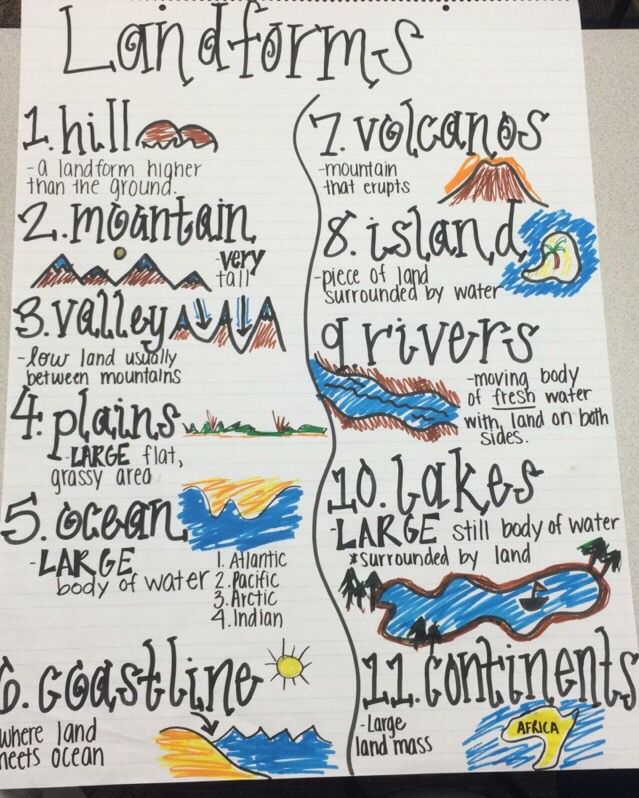 Landforms
1. hill
- a landform higher
than the ground.
2. mountain
- very
tall
3. valley
- low land usually
between mountains
4. plains
- LARGE flat,
grassy area
5. ocean
- LARGE
body of water
1. Atlantic
2. Pacific
3. Arctic
4. Indian
6. coastline
where land
meets ocean
7. volcanos
- mountain
that erupts
8. island
- piece of land
surrounded by water
9 rivers
- moving body
of fresh water
with land on both
sides.
10. lakes
- LARGE still body of water
*surrounded by land
11. continents
- Large
land mass
AFRICA